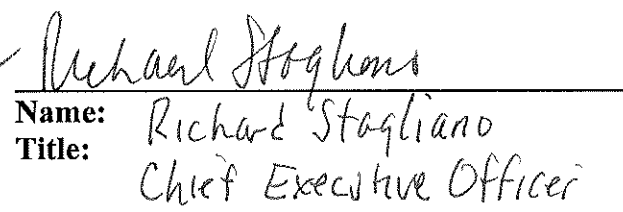 Richard Stagliano
Name: Richard Stagliano
Title: Chief Executive Officer